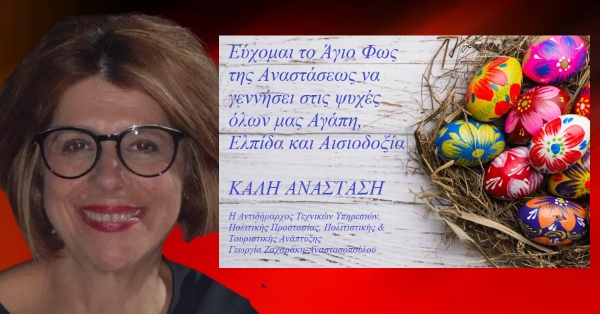 Εύχομαι το Άγιο Φως
της Αναστάσεως να
γεννήσει στις ψυχές
όλων μας Αγάπη,
Ελπίδα και Αισιοδοξία
ΚΑΛΗ ΑΝΑΣΤΑΣΗ
Η Αντιδήμαρχος Τεχνικών Υπηρεσιών,
Πολιτικής Προστασίας, Πολιτιστικής &
Τουριστικής Ανάπτυξης
Γεωργία Ζαχαράκη-Αναστασοπούλου